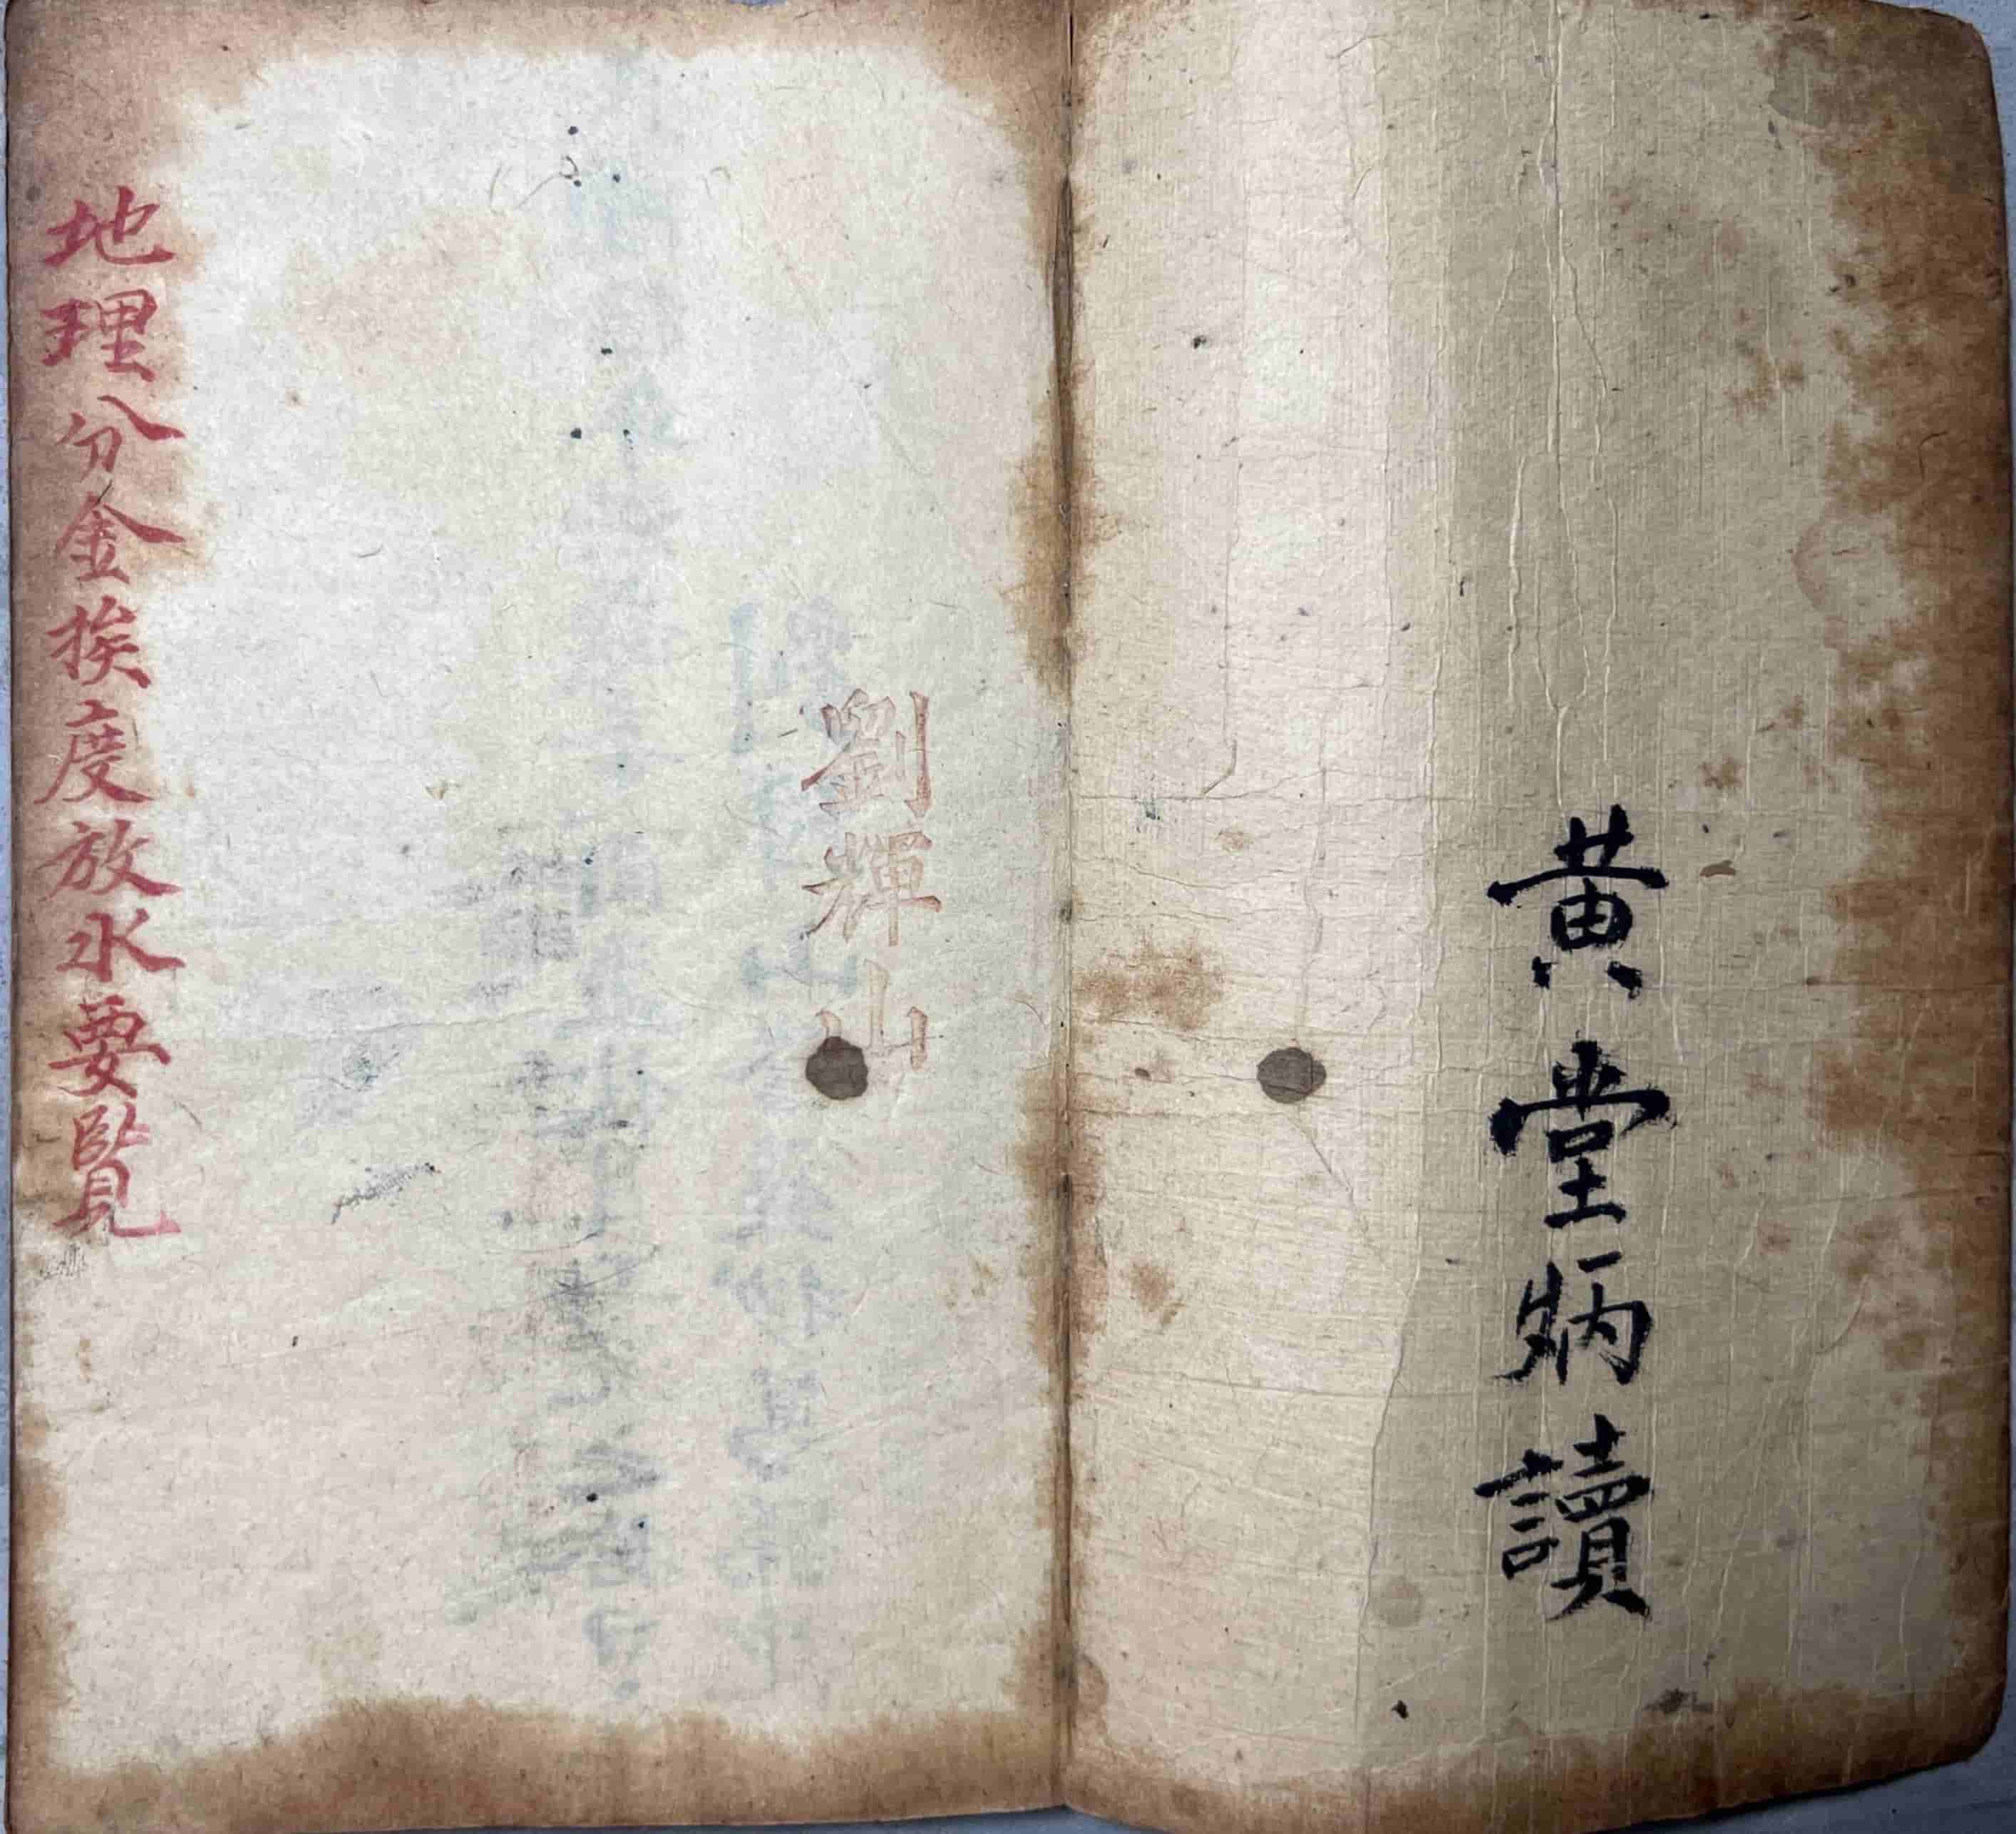 黄堂炳讀
劉輝山
地理分金挨度放水要覽